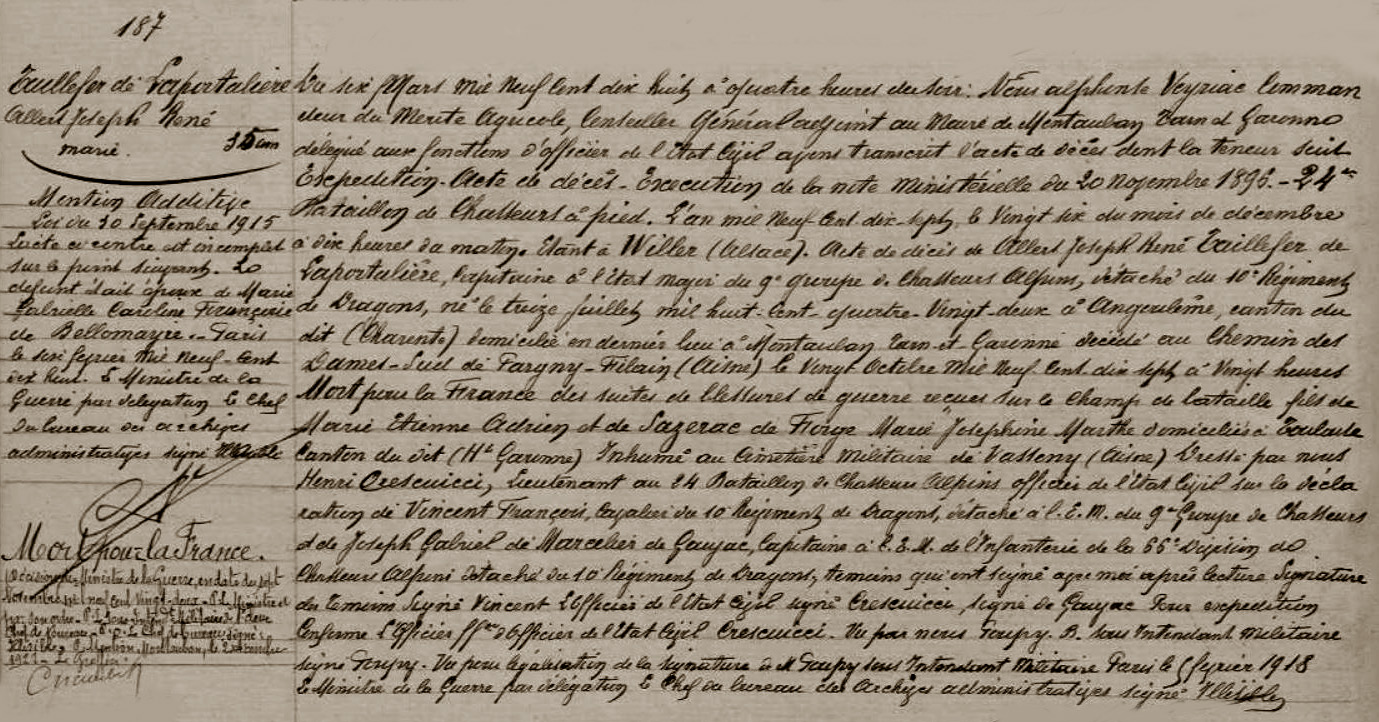 187
Taillefer de Laportalière
Albert Joseph René
marié. 35 ans
Mention Additive
Loi du 30 Septembre 1915
L'acte ci contre est incomplet
sur le point suivant. Le
défunt était époux de Marie
Gabrielle Caroline Françoise
de Bellomayre. Paris
le six février mil neuf cent
dix huit. Le Ministre de la
Guerre par délégation le Chef
du bureau des archives
administratives signé
Mort pour la France.
Décision du Ministre de la Guerre, en date du sept
Novembre mil neuf cent vingt-deux - P. le Ministre et
par son ordre - Militaire
Chef de bureau - P. le Chef de bureau signé:
Montauban, le 2
1922 - Le Greffier
Du six Mars mil neuf cent dix huit à quatre heures du soir: Nous Alphonse Veyriac Comman
deur du Mérite Agricole, Conseiller Général adjoint au Maire de Montauban Tarn et Garonne
délégué aux fonctions d'officier de l'Etat Civil avons transcrit l'acte de décès dont la teneur suit
Expédition. Acte de décès - Exécution de la note Ministérielle du 20 Novembre 1896. - 24me
Bataillon de Chasseurs à pied. L'an mil neuf cent dix-sept, le vingt six du mois de décembre
à dix heures du matin. Etant à Willer (Alsace). Acte de décès de Albert Joseph René Taillefer de
Laportalière, Capitaine à l'Etat major du 9e groupe de Chasseurs Alpins, détaché du 10e Régiment
de Dragons, né le treize juillet mil huit-cent-quatre-vingt-deux à Angoulême, canton du
dit (Charente) domicilié en dernier lieu à Montauban Tarn-et-Garonne décédé au Chemin des
Dames - Sud de Pargny-Filain (Aisne) le vingt Octobre mil neuf cent dix sept à vingt heures
Mort pour la France des suites de blessures de guerre reçues sur le champ de bataille fils de
Marie Etienne Adrien et de Sazerac de Forge Marie Joséphine Marthe domiciliés à Toulouse
Canton du dit (Hte Garonne) Inhumé au Cimetière militaire de Vasseny (Aisne) Dressé par nous
Henri Crescuicci, Lieutenant au 24 Bataillon de Chasseurs Alpins officier de l'Etat Civil sur la décla
ration de Vincent François, Cavalier du 10 Régiment de Dragons, détaché à l'E. M. du 9e Groupe de Chasseurs
et de Joseph Gabriel de Marcelier de Gaujac, Capitaine à l'E.M. de l'Infanterie de la 66e Division de
Chasseurs Alpins détaché du 10e Régiment de Dragons, témoins qui ont signé avec moi après lecture Signature
des témoins Signé Vincent L'Officier de l'Etat Civil signé Crescuicci, signé de Gaujac Pour expédition
Conforme L'Officier ff.on d'Officier de l'Etat Civil Crescuicci. Vu par nous Goupy. B. sous Intendant militaire
signé Goupy. Vu pour légalisation de la signature de M. Goupy sous Intendant Militaire Paris le 6 février 1918
Le Ministre de la Guerre par délégation le Chef du bureau des Archives administratives signé Illisible